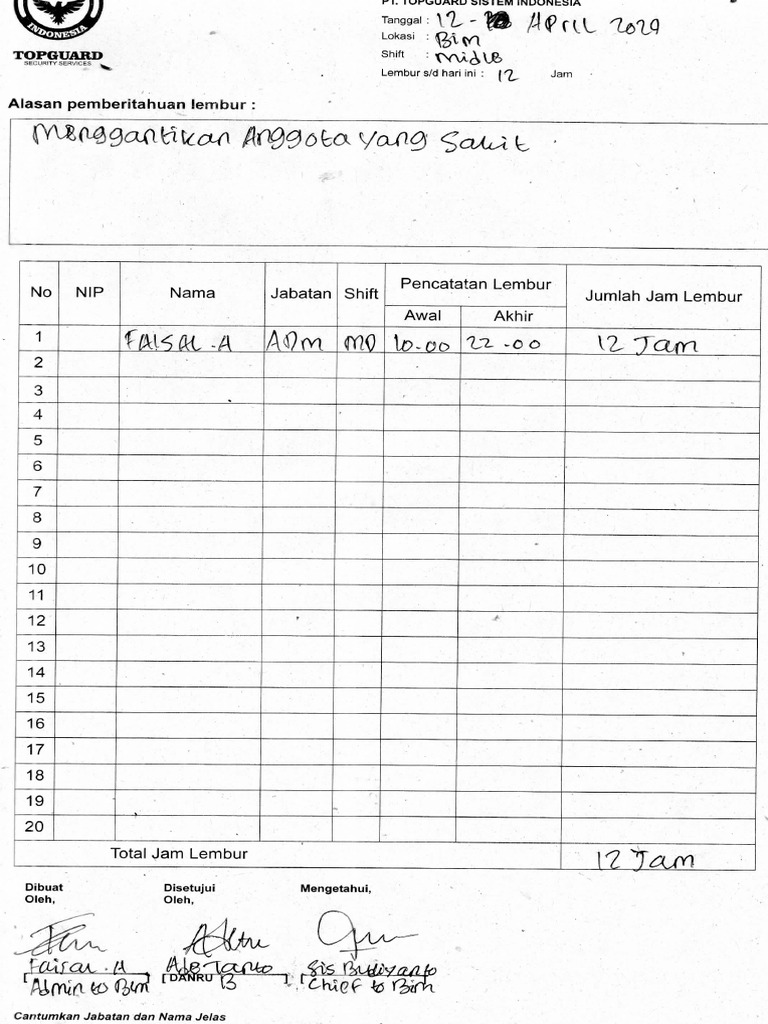 INDONESIA
TOPGUARD
SECURITY SERVICES
PT. TOPGUARD SISTEM INDONESIA
Tanggal : 12 - April 2024
Lokasi : Bim
Shift : midle
Lembur s/d hari ini : 12 Jam
Alasan pemberitahuan lembur :
Menggantikan Anggota yang Sakit
No NIP Nama Jabatan Shift Pencatatan Lembur Jumlah Jam Lembur
Awal Akhir
1 FAISAL .A ADM MD 10.00 22.00 12 Jam
2
3
4
5
6
7
8
9
10
11
12
13
14
15
16
17
18
19
20
Total Jam Lembur 12 Jam
Dibuat Oleh,
Disetujui Oleh,
Mengetahui,
Faisal .A Sis Budiyanto
Admin to Bim DANRU B Chief to Bim
Cantumkan Jabatan dan Nama Jelas